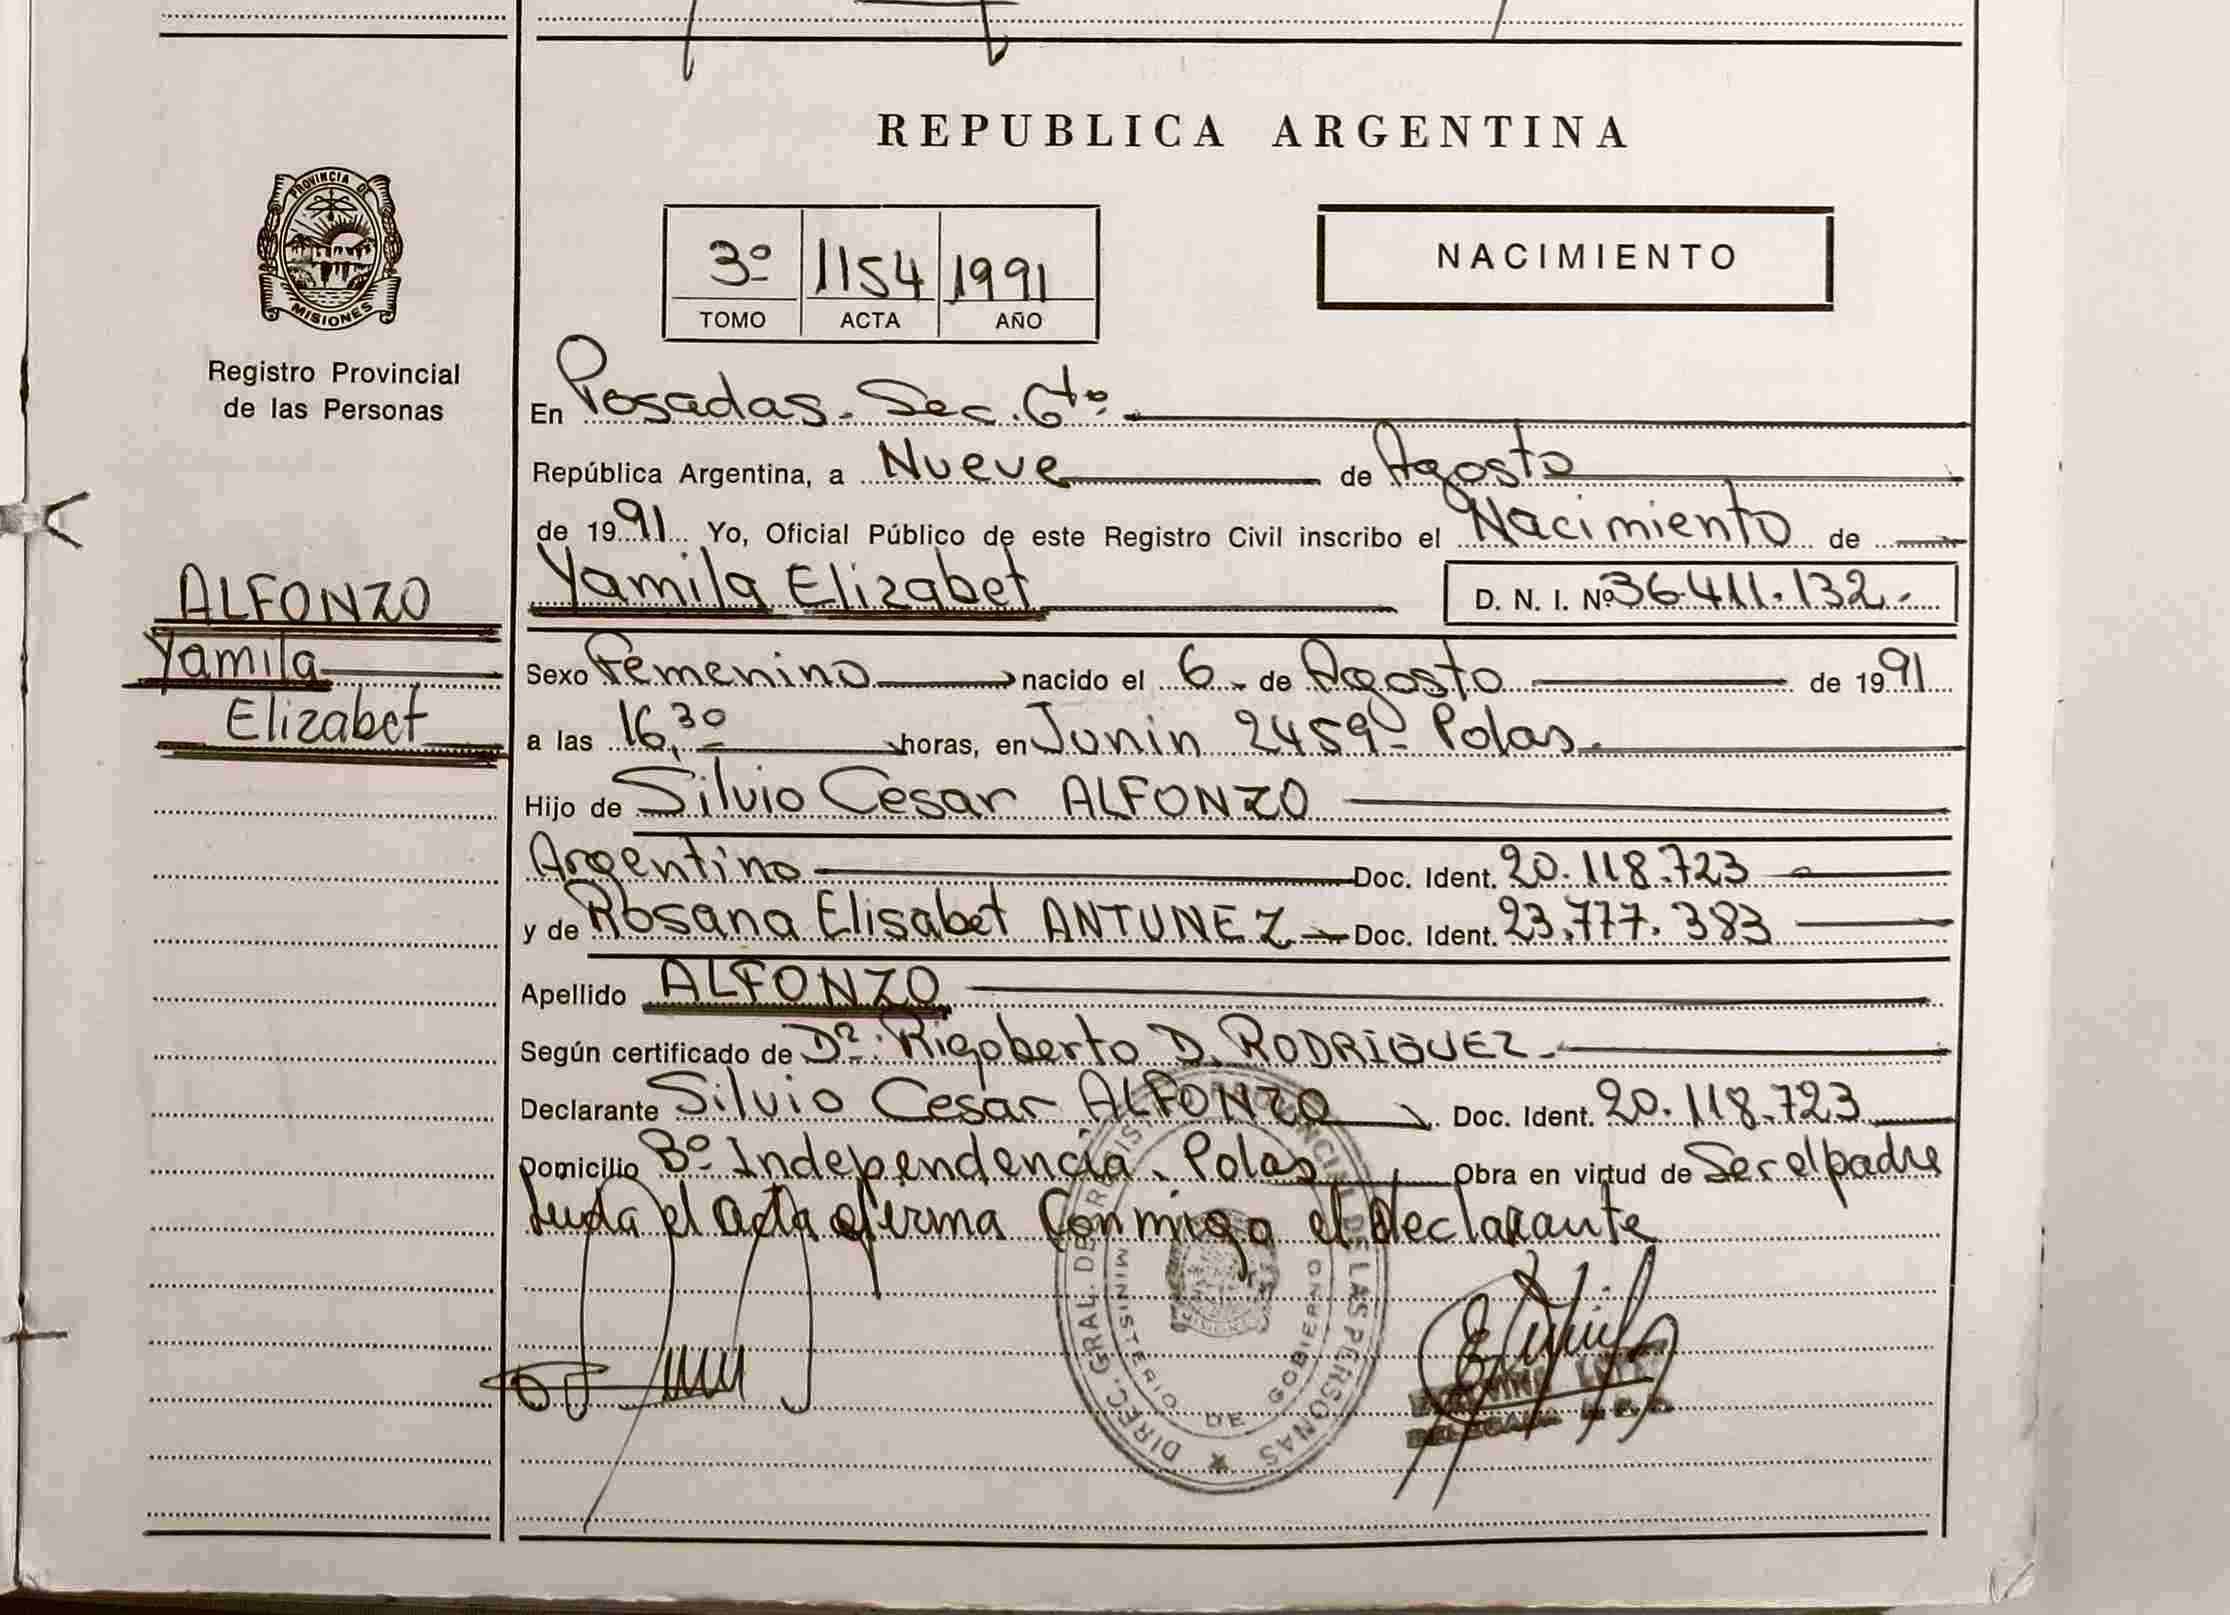 REPUBLICA ARGENTINA
PROVINCIA DE
MISIONES
Registro Provincial
de las Personas
3º 1154 1991
TOMO ACTA AÑO
NACIMIENTO
En Posadas. Sec. 6to.
República Argentina, a Nueve de Agosto
de 1991 Yo, Oficial Público de este Registro Civil inscribo el Nacimiento de
ALFONZO
Yamila
Elizabet
Yamila Elizabet D. N. I. Nº 36.411.132.-
Sexo Femenino nacido el 6 de Agosto de 1991
a las 16,30 horas, en Junin 2459- Pdas.
Hijo de Silvio Cesar ALFONZO
Argentino Doc. Ident. 20.118.723
y de Rosana Elisabet ANTUNEZ Doc. Ident. 23.777.383
Apellido ALFONZO
Según certificado de Dr. Rigoberto D. RODRIGUEZ.
Declarante Silvio Cesar ALFONZO Doc. Ident. 20.118.723
Domicilio Bº Independencia. Pdas Obra en virtud de Ser el padre
Leida el acta firma Conmigo el declarante
MINISTERIO DE GOBIERNO